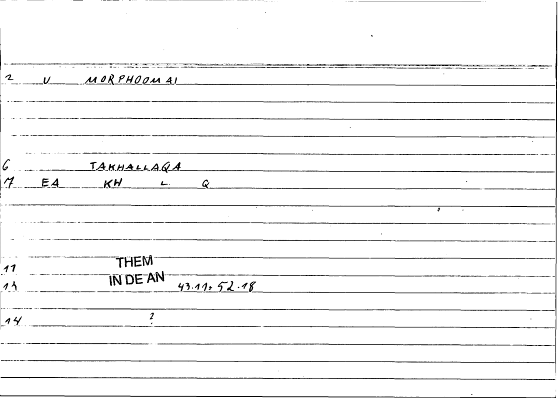 2 V MORPHOOMAI
6 TAKHALLAQA
7 EA KH L Q
11 THEM
IN DE AN
14 43.11, 52.18
14 ?